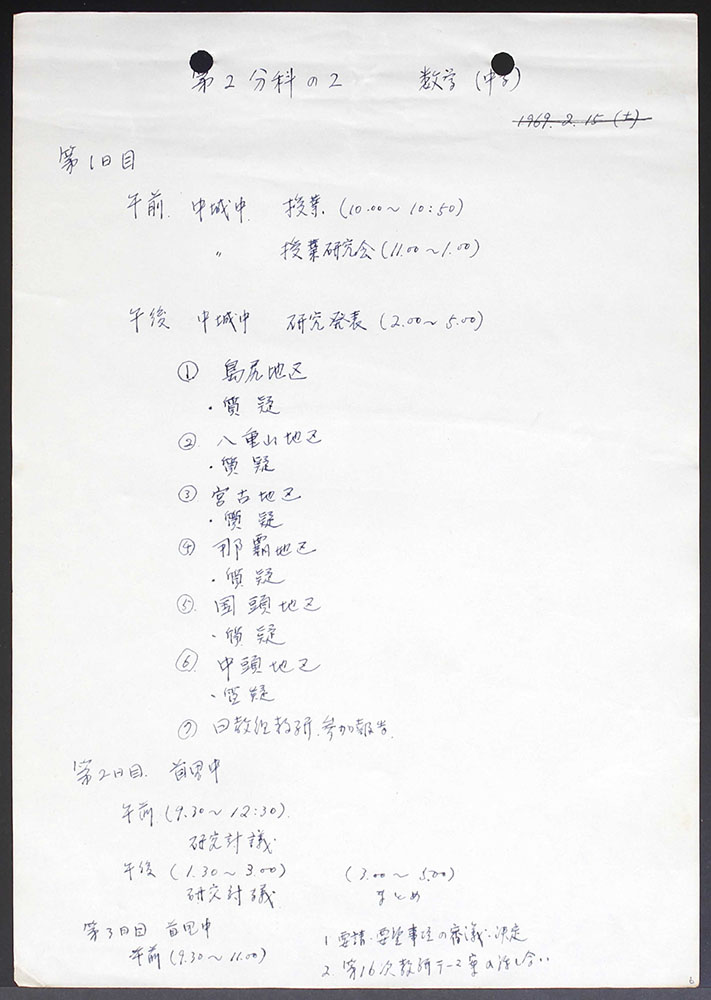 第2分科の2 数学(中学)
1969.2.15(土)
第1日目
午前. 中城中 授業. (10.00〜10:50)
〃 授業研究会(11.00〜1.00)
午後 中城中 研究発表(2.00〜5.00)
① 島尻地区
・質疑
② 八重山地区
・質疑
③ 宮古地区
・質疑
④ 那覇地区
・質疑
⑤ 国頭地区
・質疑
⑥ 中頭地区
・質疑
⑦ 日教組教研.参加報告.
第2日目. 首里中
午前(9.30〜12:30).
研究討議.
午後(1.30〜3.00) (3.00〜5.00)
研究討議 まとめ
第3日目 首里中
午前(9.30〜11.00)
1 要請・要望事項の審議・決定
2. 第16次教研テーマ案の話し合い